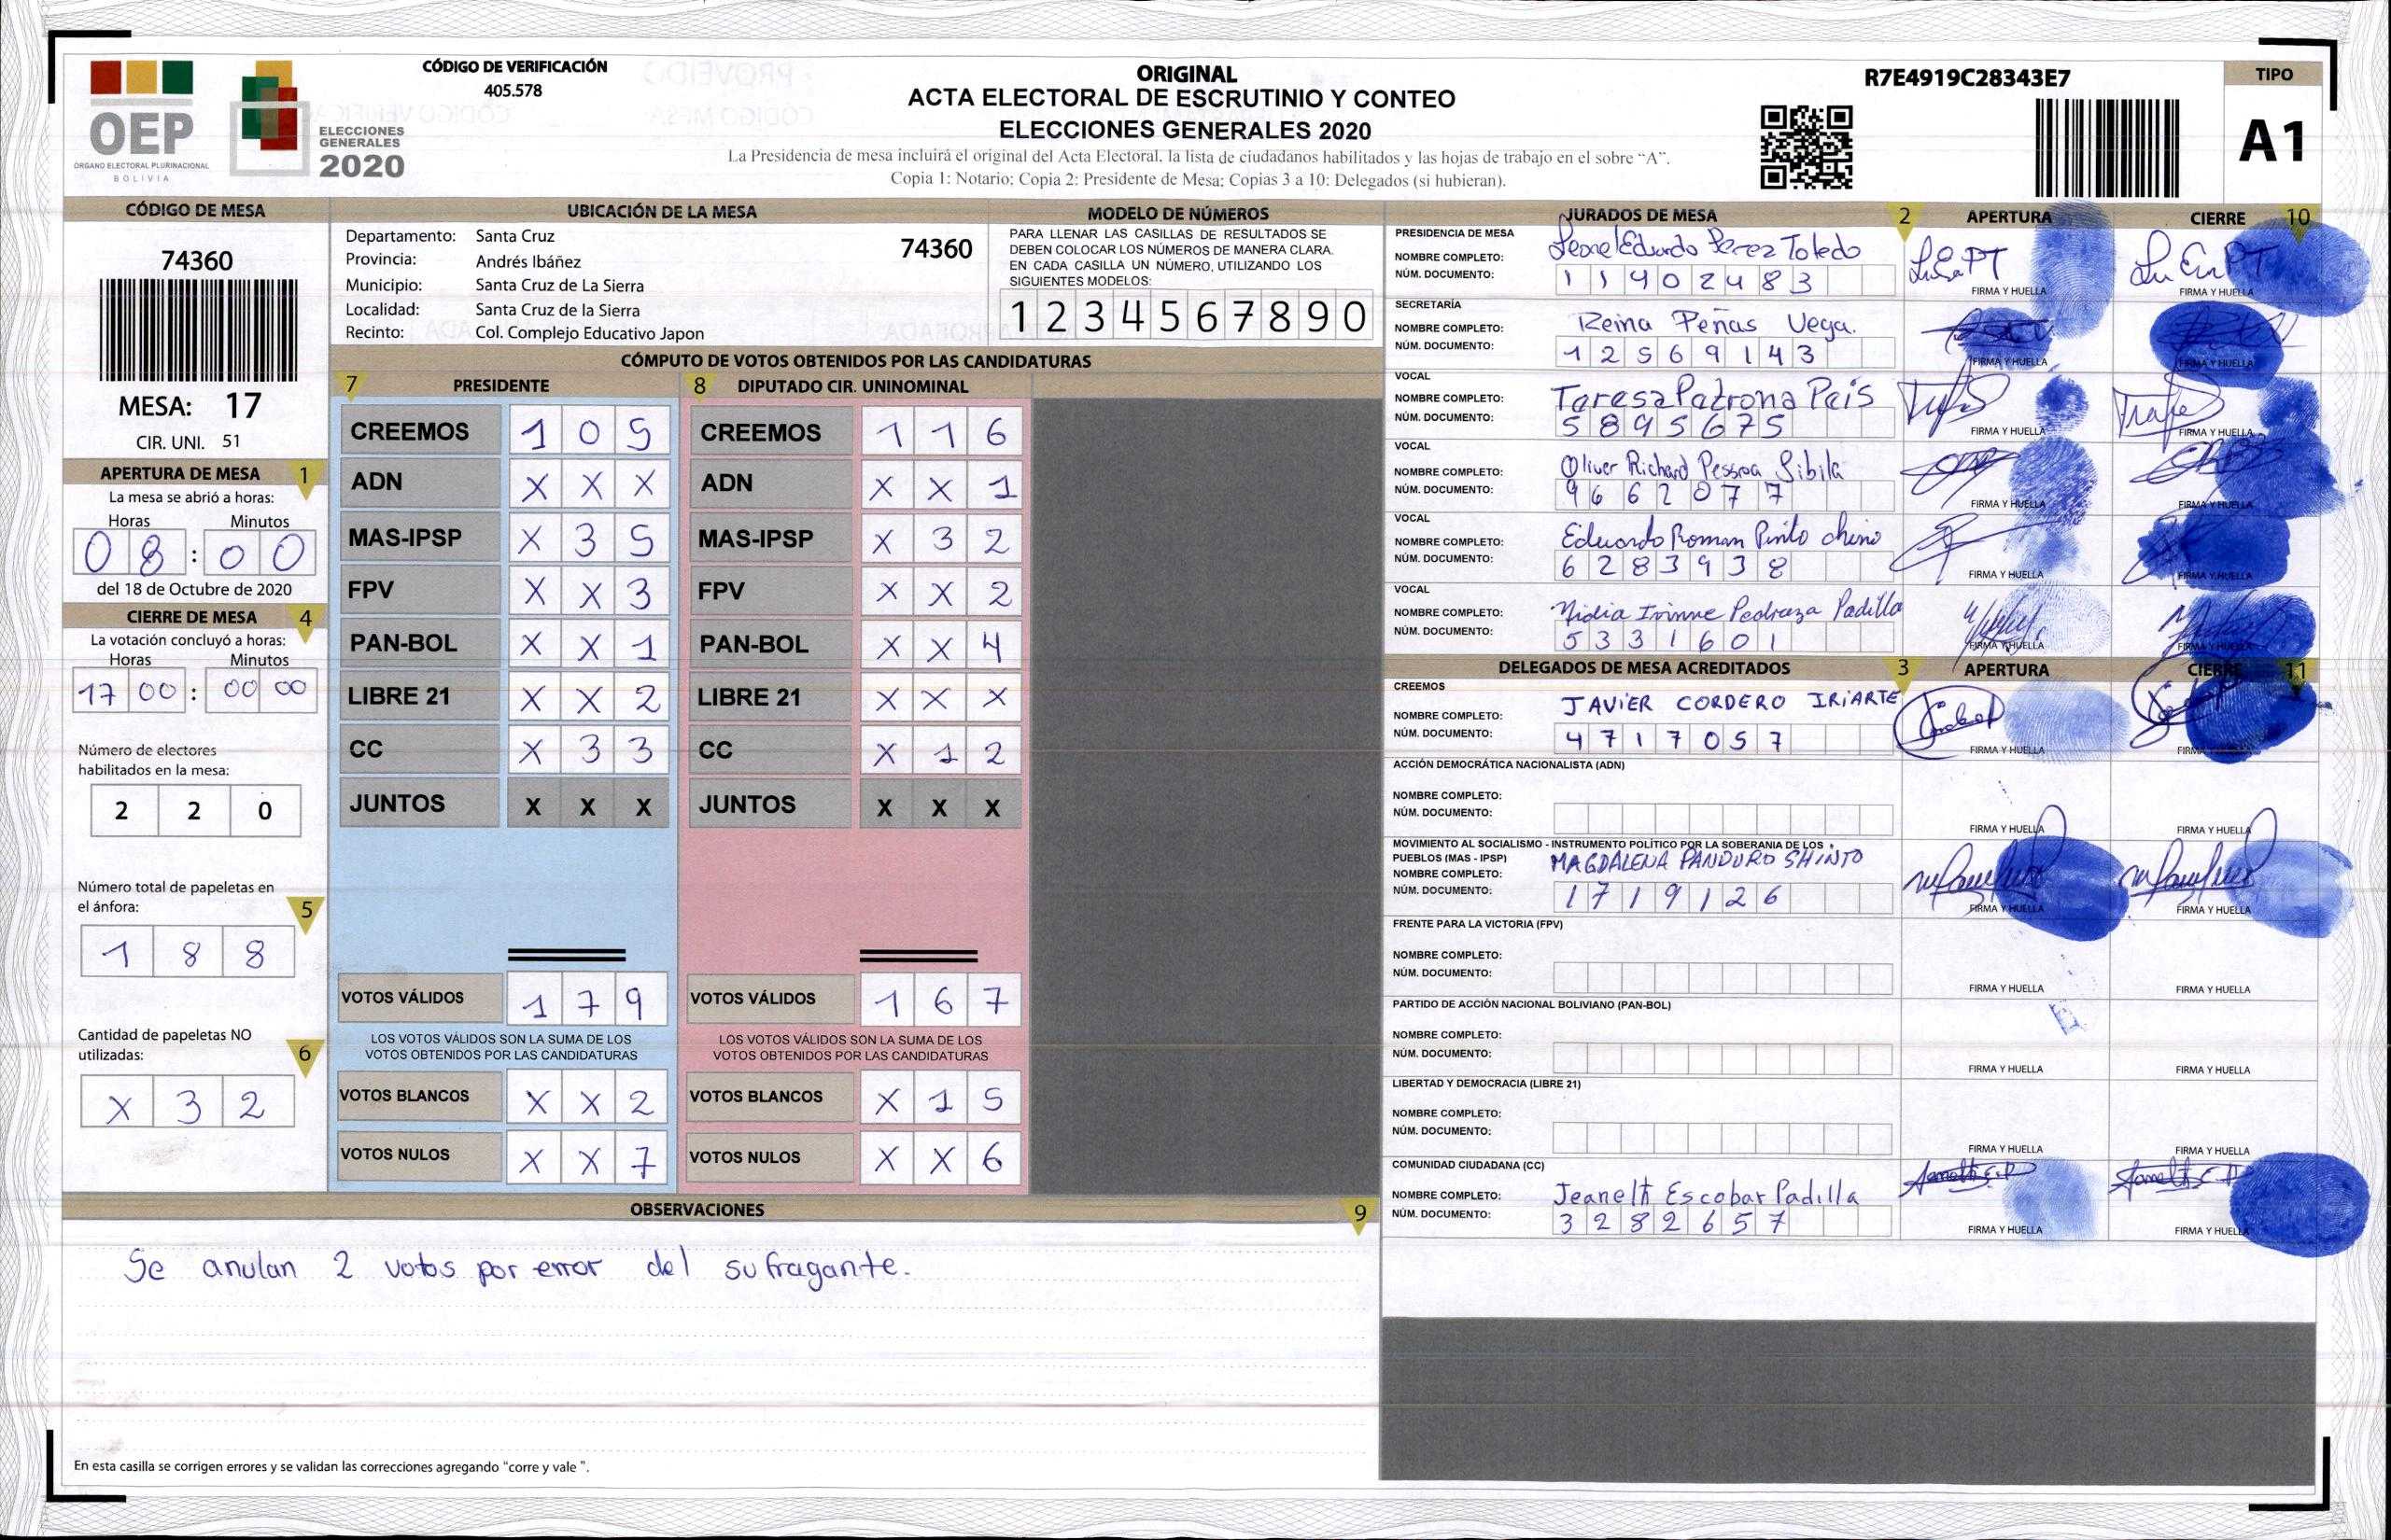 CÓDIGO DE VERIFICACIÓN
405.578
OEP
ÓRGANO ELECTORAL PLURINACIONAL
BOLIVIA
ELECCIONES
GENERALES
2020
ORIGINAL
ACTA ELECTORAL DE ESCRUTINIO Y CONTEO
ELECCIONES GENERALES 2020
La Presidencia de mesa incluirá el original del Acta Electoral, la lista de ciudadanos habilitados y las hojas de trabajo en el sobre "A".
Copia 1: Notario; Copia 2: Presidente de Mesa; Copias 3 a 10: Delegados (si hubieran).
R7E4919C28343E7
TIPO
A1
CÓDIGO DE MESA
74360
MESA: 17
CIR. UNI. 51
APERTURA DE MESA 1
La mesa se abrió a horas:
Horas Minutos
08:00
del 18 de Octubre de 2020
CIERRE DE MESA 4
La votación concluyó a horas:
Horas Minutos
17 00 : 00 00
Número de electores
habilitados en la mesa:
2 2 0
Número total de papeletas en
el ánfora: 5
1 8 8
Cantidad de papeletas NO
utilizadas: 6
X 3 2
UBICACIÓN DE LA MESA
Departamento: Santa Cruz 74360
Provincia: Andrés Ibáñez
Municipio: Santa Cruz de La Sierra
Localidad: Santa Cruz de la Sierra
Recinto: Col. Complejo Educativo Japon
MODELO DE NÚMEROS
PARA LLENAR LAS CASILLAS DE RESULTADOS SE
DEBEN COLOCAR LOS NÚMEROS DE MANERA CLARA.
EN CADA CASILLA UN NÚMERO, UTILIZANDO LOS
SIGUIENTES MODELOS:
1 2 3 4 5 6 7 8 9 0
CÓMPUTO DE VOTOS OBTENIDOS POR LAS CANDIDATURAS
7 PRESIDENTE
CREEMOS 1 0 5
ADN X X X
MAS-IPSP X 3 5
FPV X X 3
PAN-BOL X X 1
LIBRE 21 X X 2
CC X 3 3
JUNTOS X X X
VOTOS VÁLIDOS 1 7 9
LOS VOTOS VÁLIDOS SON LA SUMA DE LOS
VOTOS OBTENIDOS POR LAS CANDIDATURAS
VOTOS BLANCOS X X 2
VOTOS NULOS X X 7
8 DIPUTADO CIR. UNINOMINAL
CREEMOS 1 1 6
ADN X X 1
MAS-IPSP X 3 2
FPV X X 2
PAN-BOL X X 4
LIBRE 21 X X X
CC X 1 2
JUNTOS X X X
VOTOS VÁLIDOS 1 6 7
LOS VOTOS VÁLIDOS SON LA SUMA DE LOS
VOTOS OBTENIDOS POR LAS CANDIDATURAS
VOTOS BLANCOS X 1 5
VOTOS NULOS X X 6
OBSERVACIONES 9
Se anulan 2 votos por error del sufragante.
En esta casilla se corrigen errores y se validan las correcciones agregando "corre y vale ".
JURADOS DE MESA 2 APERTURA CIERRE 10
PRESIDENCIA DE MESA
NOMBRE COMPLETO: Leonel Eduardo Perez Toledo
NÚM. DOCUMENTO: 11402483
FIRMA Y HUELLA FIRMA Y HUELLA
SECRETARÍA
NOMBRE COMPLETO: Reina Peñas Vega.
NÚM. DOCUMENTO: 12569143
FIRMA Y HUELLA FIRMA Y HUELLA
VOCAL
NOMBRE COMPLETO: Teresa Patrona Peis
NÚM. DOCUMENTO: 5895675
FIRMA Y HUELLA FIRMA Y HUELLA
VOCAL
NOMBRE COMPLETO: Oliver Richard Pessoa Sibila
NÚM. DOCUMENTO: 9662077
FIRMA Y HUELLA FIRMA Y HUELLA
VOCAL
NOMBRE COMPLETO: Eduardo Roman Pinto
NÚM. DOCUMENTO: 6283938
FIRMA Y HUELLA FIRMA Y HUELLA
VOCAL
NOMBRE COMPLETO: Nidia Ivinne Pedraza Padilla
NÚM. DOCUMENTO: 5331601
FIRMA Y HUELLA FIRMA Y HUELLA
DELEGADOS DE MESA ACREDITADOS 3 APERTURA CIERRE 11
CREEMOS
NOMBRE COMPLETO: JAVIER CORDERO IRIARTE
NÚM. DOCUMENTO: 4717057
FIRMA Y HUELLA FIRMA
ACCIÓN DEMOCRÁTICA NACIONALISTA (ADN)
NOMBRE COMPLETO:
NÚM. DOCUMENTO:
FIRMA Y HUELLA FIRMA Y HUELLA
MOVIMIENTO AL SOCIALISMO - INSTRUMENTO POLÍTICO POR LA SOBERANIA DE LOS
PUEBLOS (MAS - IPSP)
NOMBRE COMPLETO: MAGDALENA PANDURO SHINTO
NÚM. DOCUMENTO: 1719126
FIRMA Y HUELLA FIRMA Y HUELLA
FRENTE PARA LA VICTORIA (FPV)
NOMBRE COMPLETO:
NÚM. DOCUMENTO:
FIRMA Y HUELLA FIRMA Y HUELLA
PARTIDO DE ACCIÓN NACIONAL BOLIVIANO (PAN-BOL)
NOMBRE COMPLETO:
NÚM. DOCUMENTO:
FIRMA Y HUELLA FIRMA Y HUELLA
LIBERTAD Y DEMOCRACIA (LIBRE 21)
NOMBRE COMPLETO:
NÚM. DOCUMENTO:
FIRMA Y HUELLA FIRMA Y HUELLA
COMUNIDAD CIUDADANA (CC)
NOMBRE COMPLETO: Jeanelt Escobar Padilla
NÚM. DOCUMENTO: 3282657
FIRMA Y HUELLA FIRMA Y HUELLA